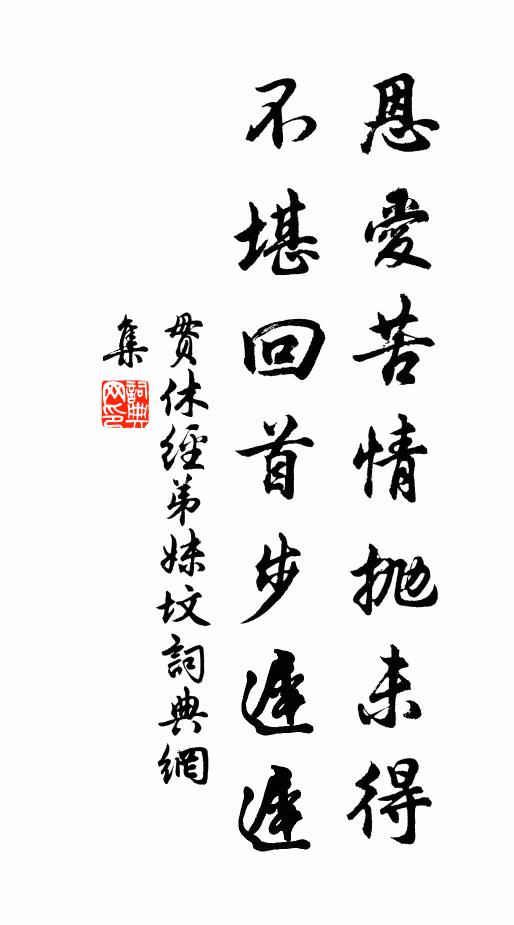 恩愛苦情抛未得
不堪回首步遲遲
貫休經弟妹坟詞典網
集
詞典
网印